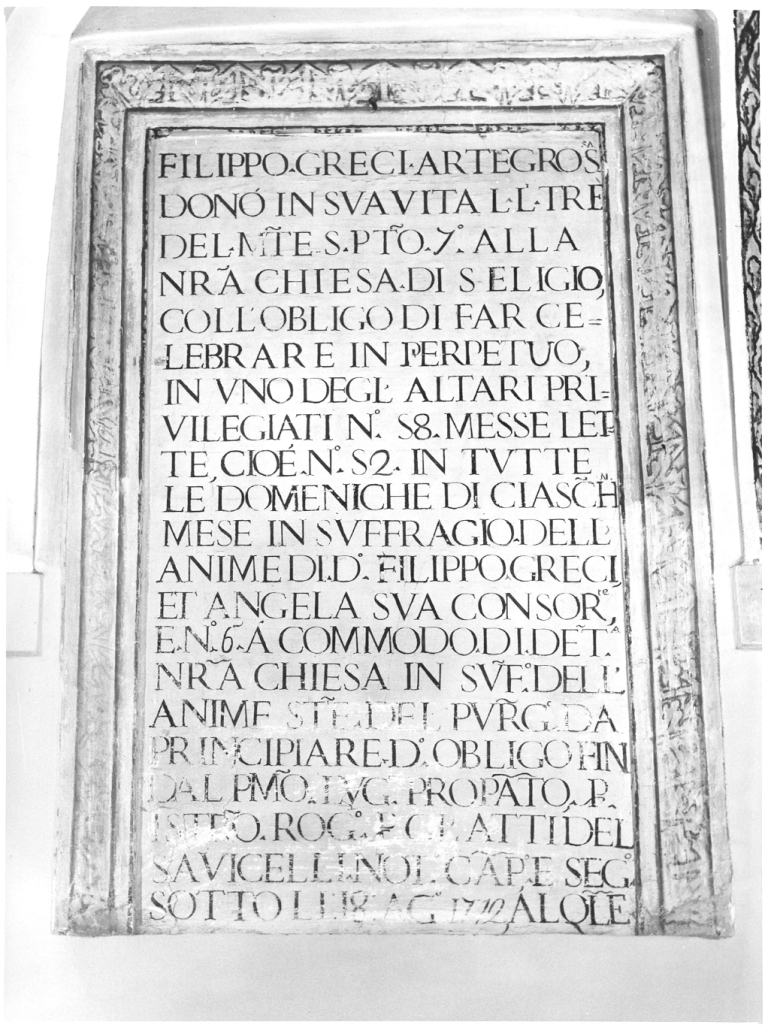 FILIPPO·GRECI·ARTEGROSSA
DONÓ IN SVA VITA L·L·TRE
DEL·M̃TE S·PT̃O·7º ALLA
NR̃A CHIESA·DI S·ELIGIO,
COLL'OBLIGO DI FAR CE=
LEBRARE IN PERPETUO,
IN VNO DEGL' ALTARI PRI=
VILEGIATI Nº S8·MESSE LET=
TE, CIOÉ·Nº S2· IN TVTTE
LE DOMENICHE DI CIASCH̃N
MESE IN SVFFRAGIO·DELL'
ANIME DI·Dº FILIPPO·GRECI,
ET ANGELA SVA CONSORre,
E·Nº 6·A COMMODO·DI·DET̃ᵃ
NR̃A CHIESA IN SṼFº·DELL'
ANIME ST̃E·DEL PVR̃G· DA
PRINCIPIARE·Dº OBLIGO FIN
DAL PM̃O·LVG· PROPAT̃O· P·
ROGº
ATTI DEL
SAVICELLI NO CAP·E SEGº
SOTTO LI 18 AGº 17 AL QL̃E